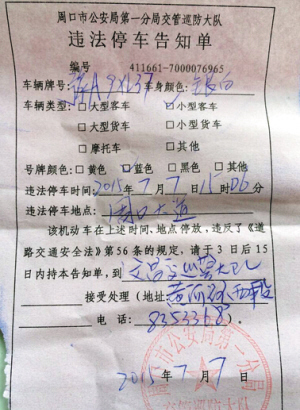 周口市公安局第一分局交管巡防大队
违法停车告知单
编号 411661-7000076965
车辆牌号: A9XL37 车身颜色: 银白
车辆类型: □大型客车 □小型客车
□大型货车 □小型货车
□摩托车 □其他
号牌颜色: □黄色 □蓝色 □黑色 □其他
违法停车时间: 2015年7月7日15时06分
违法停车地点: 周口大道
该机动车在上述时间、地点停放,违反了《道
路交通安全法》第56条的规定,请于3日后15
日内持本告知单,到文昌
接受处理(地址: 黄河路
电话: 8353368)。
2015年7月7日
周口市公安局第一分局
交管巡防大队